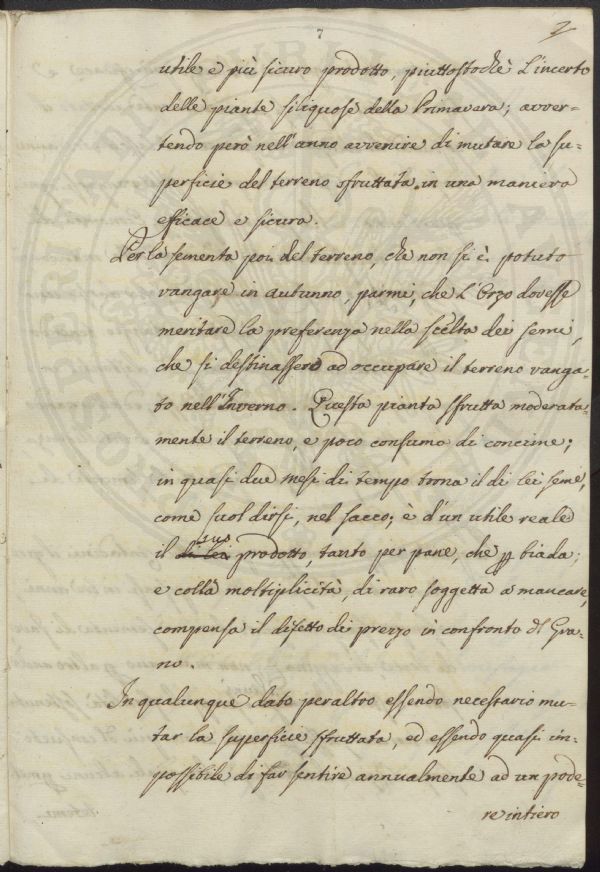 7
2
utile e più sicuro prodotto, piuttostochè l'incerto
delle piante siliquose della Primavera; avver=
tendo però nell'anno avvenire di mutare la su=
perficie del terreno sfruttata in una maniera
efficace e sicura.
Per la sementa poi del terreno, che non si è potuto
vangare in autunno, parmi, che l'Orzo dovesse
meritare la preferenza nella scelta dei semi,
che si destinassero ad occupare il terreno vanga=
to nell'Inverno. Questa pianta sfrutta moderata=
mente il terreno, e poco consuma di concime;
in quasi due mesi di tempo torna il di lei seme,
come suol dirsi, nel sacco; è d'un utile reale
il suo prodotto, tanto per pane, chè p biada;
e colla moltiplicità, di raro soggetta a mancare,
compensa il difetto di prezzo in confronto dl Gra=
no.
In qualunque dato peraltro essendo necessario mu=
tar la superficie sfruttata, ed essendo quasi im=
possibile di far sentire annualmente ad un pode=
re intiero